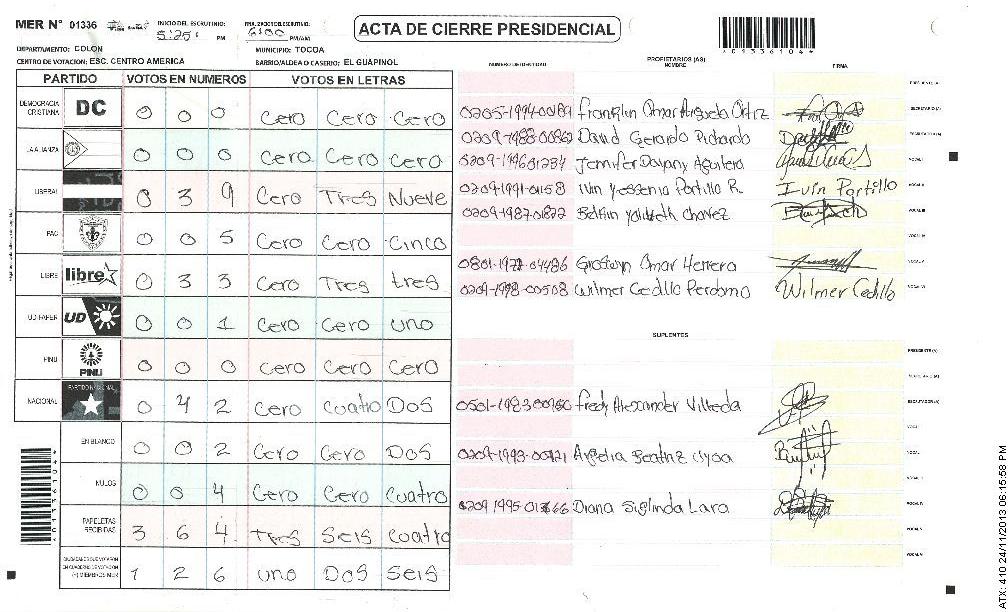 MER N° 01336
INICIO DEL ESCRUTINIO: 5:25 PM
FINALIZACION DEL ESCRUTINIO: 6:00 PM/AM
ACTA DE CIERRE PRESIDENCIAL
*01336104*
DEPARTAMENTO: COLON
MUNICIPIO: TOCOA
CENTRO DE VOTACION: ESC. CENTRO AMERICA
BARRIO/ALDEA O CASERIO: EL GUAPINOL
PARTIDO VOTOS EN NUMEROS VOTOS EN LETRAS
DEMOCRACIA CRISTIANA DC 0 0 0 Cero Cero Cero
LA ALIANZA 0 0 0 Cero Cero Cero
LIBERAL 0 3 9 Cero Tres Nueve
PAC 0 0 5 Cero Cero Cinco
LIBRE libre 0 3 3 Cero Tres tres
UD-FAPER UD 0 0 1 Cero Cero uno
PINU PINU 0 0 0 Cero Cero Cero
NACIONAL PARTIDO NACIONAL 0 4 2 Cero Cuatro Dos
EN BLANCO 0 0 2 Cero Cero Dos
NULOS 0 0 4 Cero Cero Cuatro
PAPELETAS RECIBIDAS 3 6 4 Tres Seis Cuatro
CIUDADANOS QUE VOTARON EN CUADERNO DE VOTACION (+) MIEMBROS MER 1 2 6 uno Dos Seis
NUMERO DE IDENTIDAD PROPIETARIOS (AS) NOMBRE FIRMA
PRESIDENTE (A)
0205-1994-00189 Franklin Omar Ortiz SECRETARIO (A)
David Gerardo Pichardo ESCRUTADOR (A)
Jennifer Dayany Aguilera VOCAL I
0209-1991-01158 Ivin Yessenia Portillo R. Ivin Portillo VOCAL II
0209-1987-01822 Chavez VOCAL III
VOCAL IV
Omar Herrera VOCAL V
0209-1998-00508 Wilmer Cedillo Perdomo Wilmer Cedillo VOCAL VI
SUPLENTES
PRESIDENTE (A)
SECRETARIO (A)
Fredy Alexander Villeda ESCRUTADOR (A)
VOCAL I
Beatriz VOCAL II
VOCAL III
Diana Siglinda Lara VOCAL IV
VOCAL V
VOCAL VI
*01336104*
ATX: 410 24/11/2013 06:15:58 PM